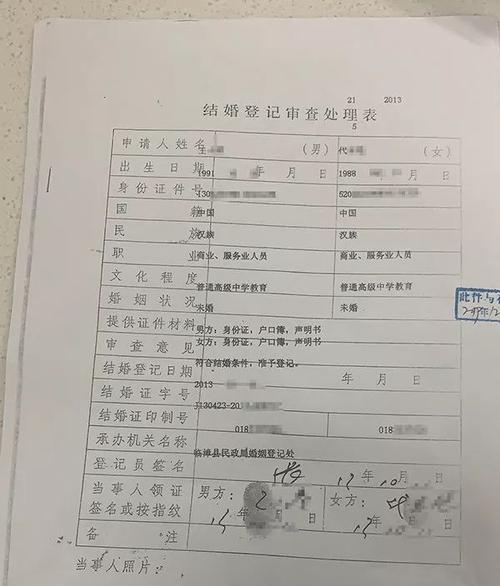 21 2013
结婚登记审查处理表
5
申请人姓名 王 （男） 代 （女）
出生日期 1991 年 月 日 1988 年 月 日
身份证件号 130 520
国籍 中国 中国
民族 汉族 汉族
职业 商业、服务业人员 商业、服务业人员
文化程度 普通高级中学教育 普通高级中学教育
婚姻状况 未婚 未婚
提供证件材料 男方：身份证，户口簿，声明书
女方：身份证，户口簿，声明书
审查意见 符合结婚条件，准予登记。
结婚登记日期 2013 年 月 日
结婚证字号 J130423-20
结婚证印制号 018 018
承办机关名称 临漳县民政局婚姻登记处
登记员签名 13 年 10 月 日
当事人领证 男方： 女方：
签名或按指纹 13 年 月 日 13 年 月 日
备注
当事人照片：
此件与